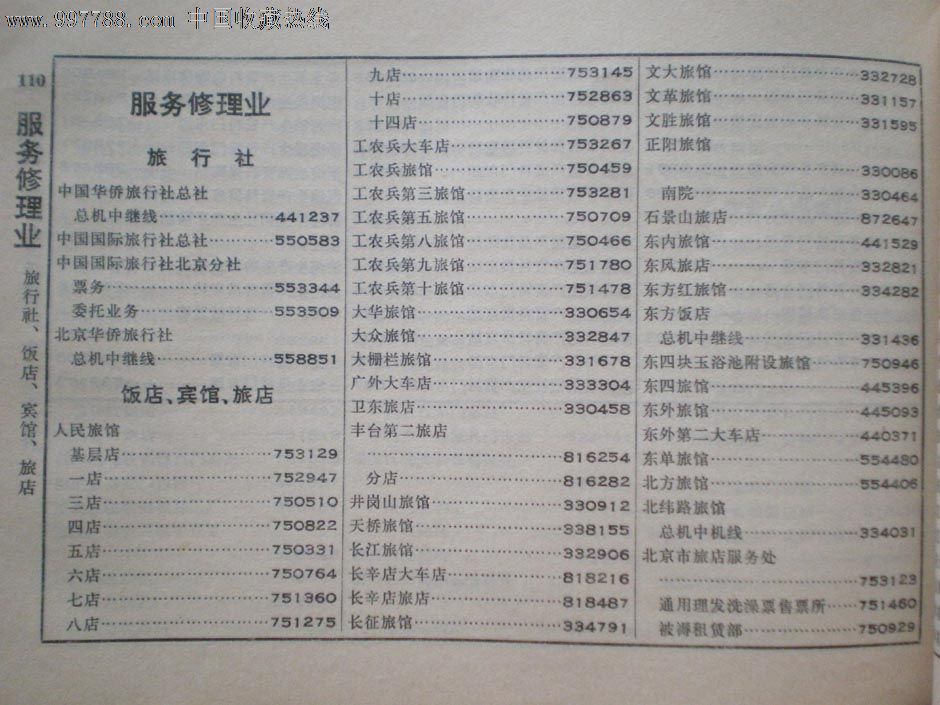 www.997788.com 中国收藏热线
110
服务修理业
旅行社、饭店、宾馆、旅店
服务修理业
旅行社
中国华侨旅行社总社
总机中继线……441237
中国国际旅行社总社……550583
中国国际旅行社北京分社
票务……553344
委托业务……553509
北京华侨旅行社
总机中继线……558851
饭店、宾馆、旅店
人民旅馆
基层店……753129
一店……752947
三店……750510
四店……750822
五店……750331
六店……750764
七店……751360
八店……751275
九店……753145
十店……752863
十四店……750879
工农兵大车店……753267
工农兵旅馆……750459
工农兵第三旅馆……753281
工农兵第五旅馆……750709
工农兵第八旅馆……750466
工农兵第九旅馆……751780
工农兵第十旅馆……751478
大华旅馆……330654
大众旅馆……332847
大栅栏旅馆……331678
广外大车店……333304
卫东旅店……330458
丰台第二旅店
……816254
分店……816282
井岗山旅馆……330912
天桥旅馆……338155
长江旅馆……332906
长辛店大车店……818216
长辛店旅店……818487
长征旅馆……334791
文大旅馆……332728
文革旅馆……331157
文胜旅馆……331595
正阳旅馆
……330086
南院……330464
石景山旅店……872647
东内旅馆……441529
东风旅店……332821
东方红旅馆……334282
东方饭店
总机中继线……331436
东四块玉浴池附设旅馆……750946
东四旅馆……445396
东外旅馆……445093
东外第二大车店……440371
东单旅馆……554480
北方旅馆……554406
北纬路旅馆
总机中机线……334031
北京市旅店服务处
……753123
通用理发洗澡票售票所……751460
被褥租赁部……750929